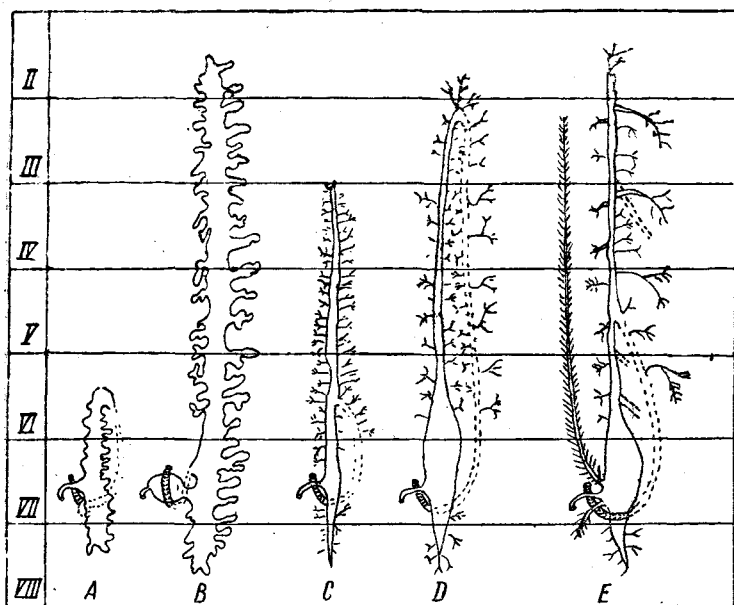 II
III
IV
V
VI
VII
VIII A B C D E